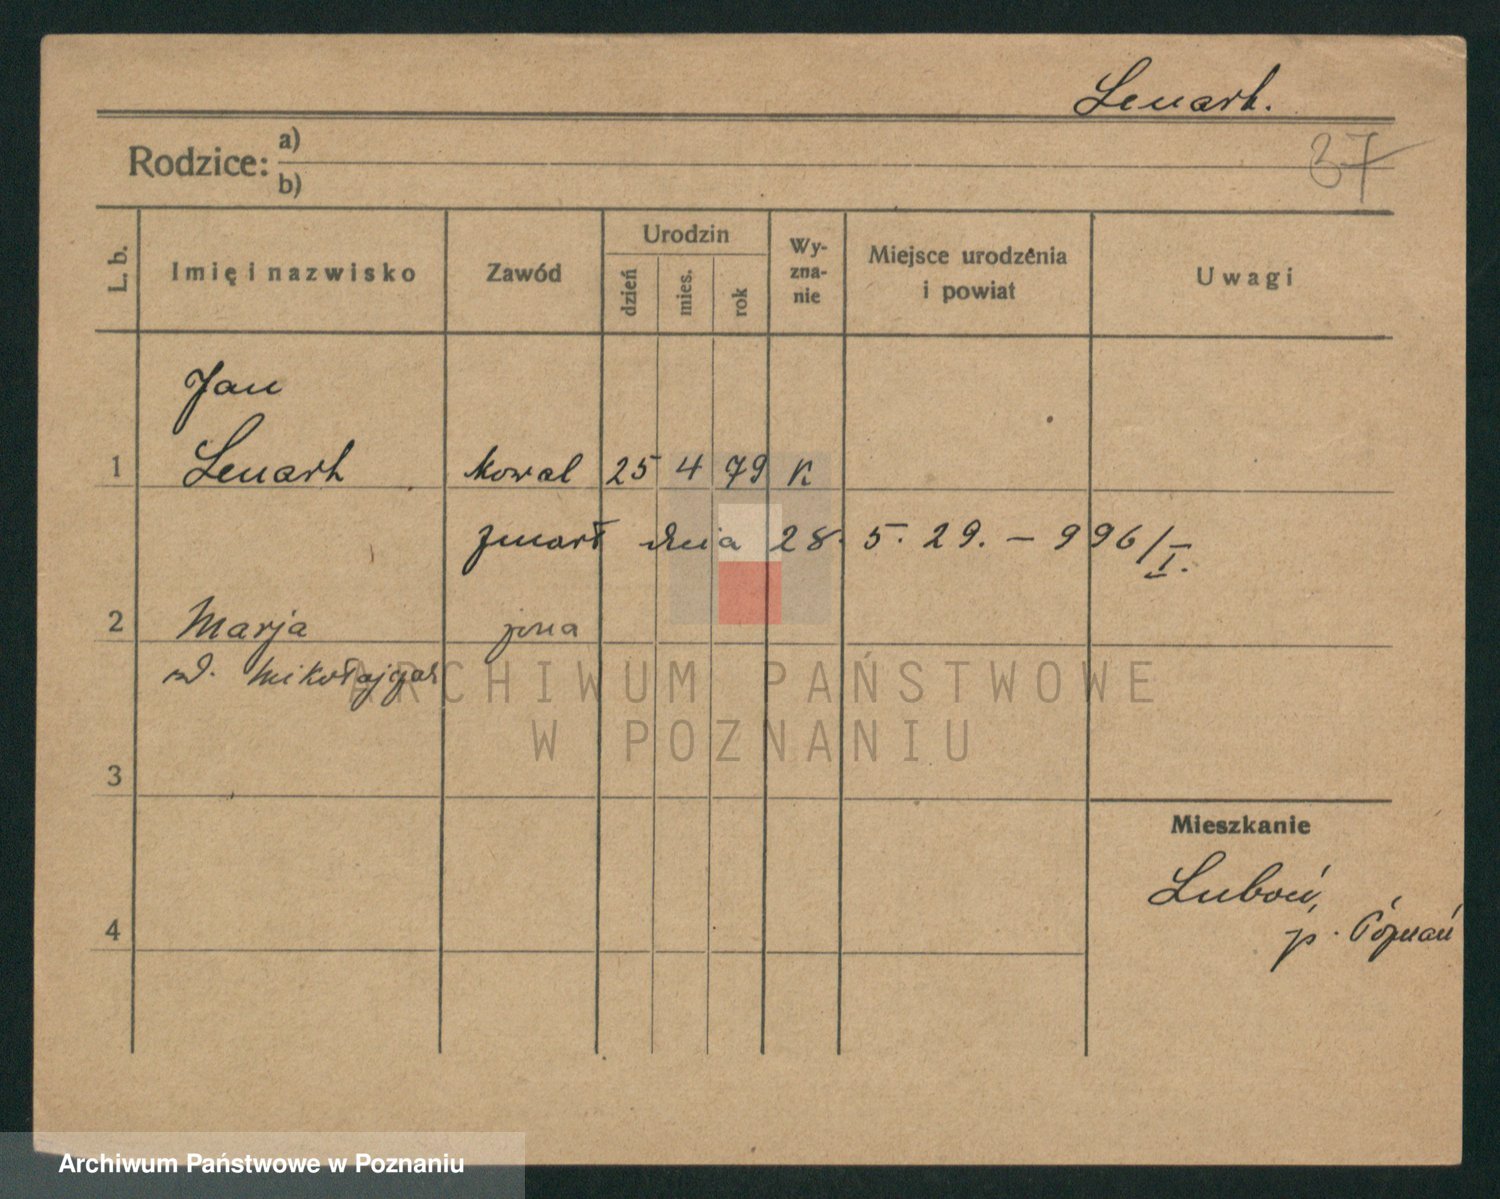 Lenart.
37
Rodzice: a)
b)
L. b. Imię i nazwisko Zawód Urodzin dzień mies. rok Wyznanie Miejsce urodzenia i powiat Uwagi
Jan
1 Lenart kowal 25 4 79 K
zmarł dnia 28. 5. 29. – 996/I.
2 Marja żona
Mikołajczak
ARCHIWUM PAŃSTWOWE
W POZNANIU
3
Mieszkanie
Luboń,
p. Poznań
4
Archiwum Państwowe w Poznaniu